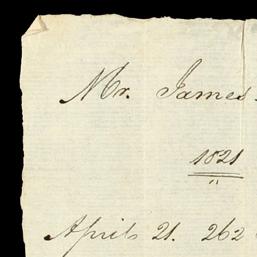 Mr. James
1821
April 21. 262